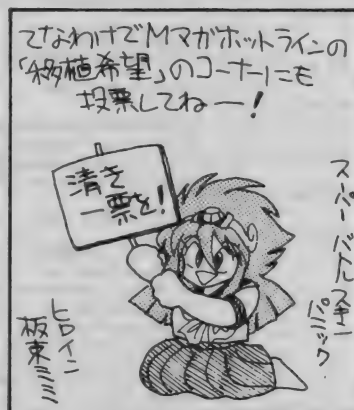 てなわけでMマガホットラインの
「移植希望」のコーナーにも
投票してねー!
清き
一票を!
スーパーバトルスキン
パニック
ヒロイン
板東ミミ